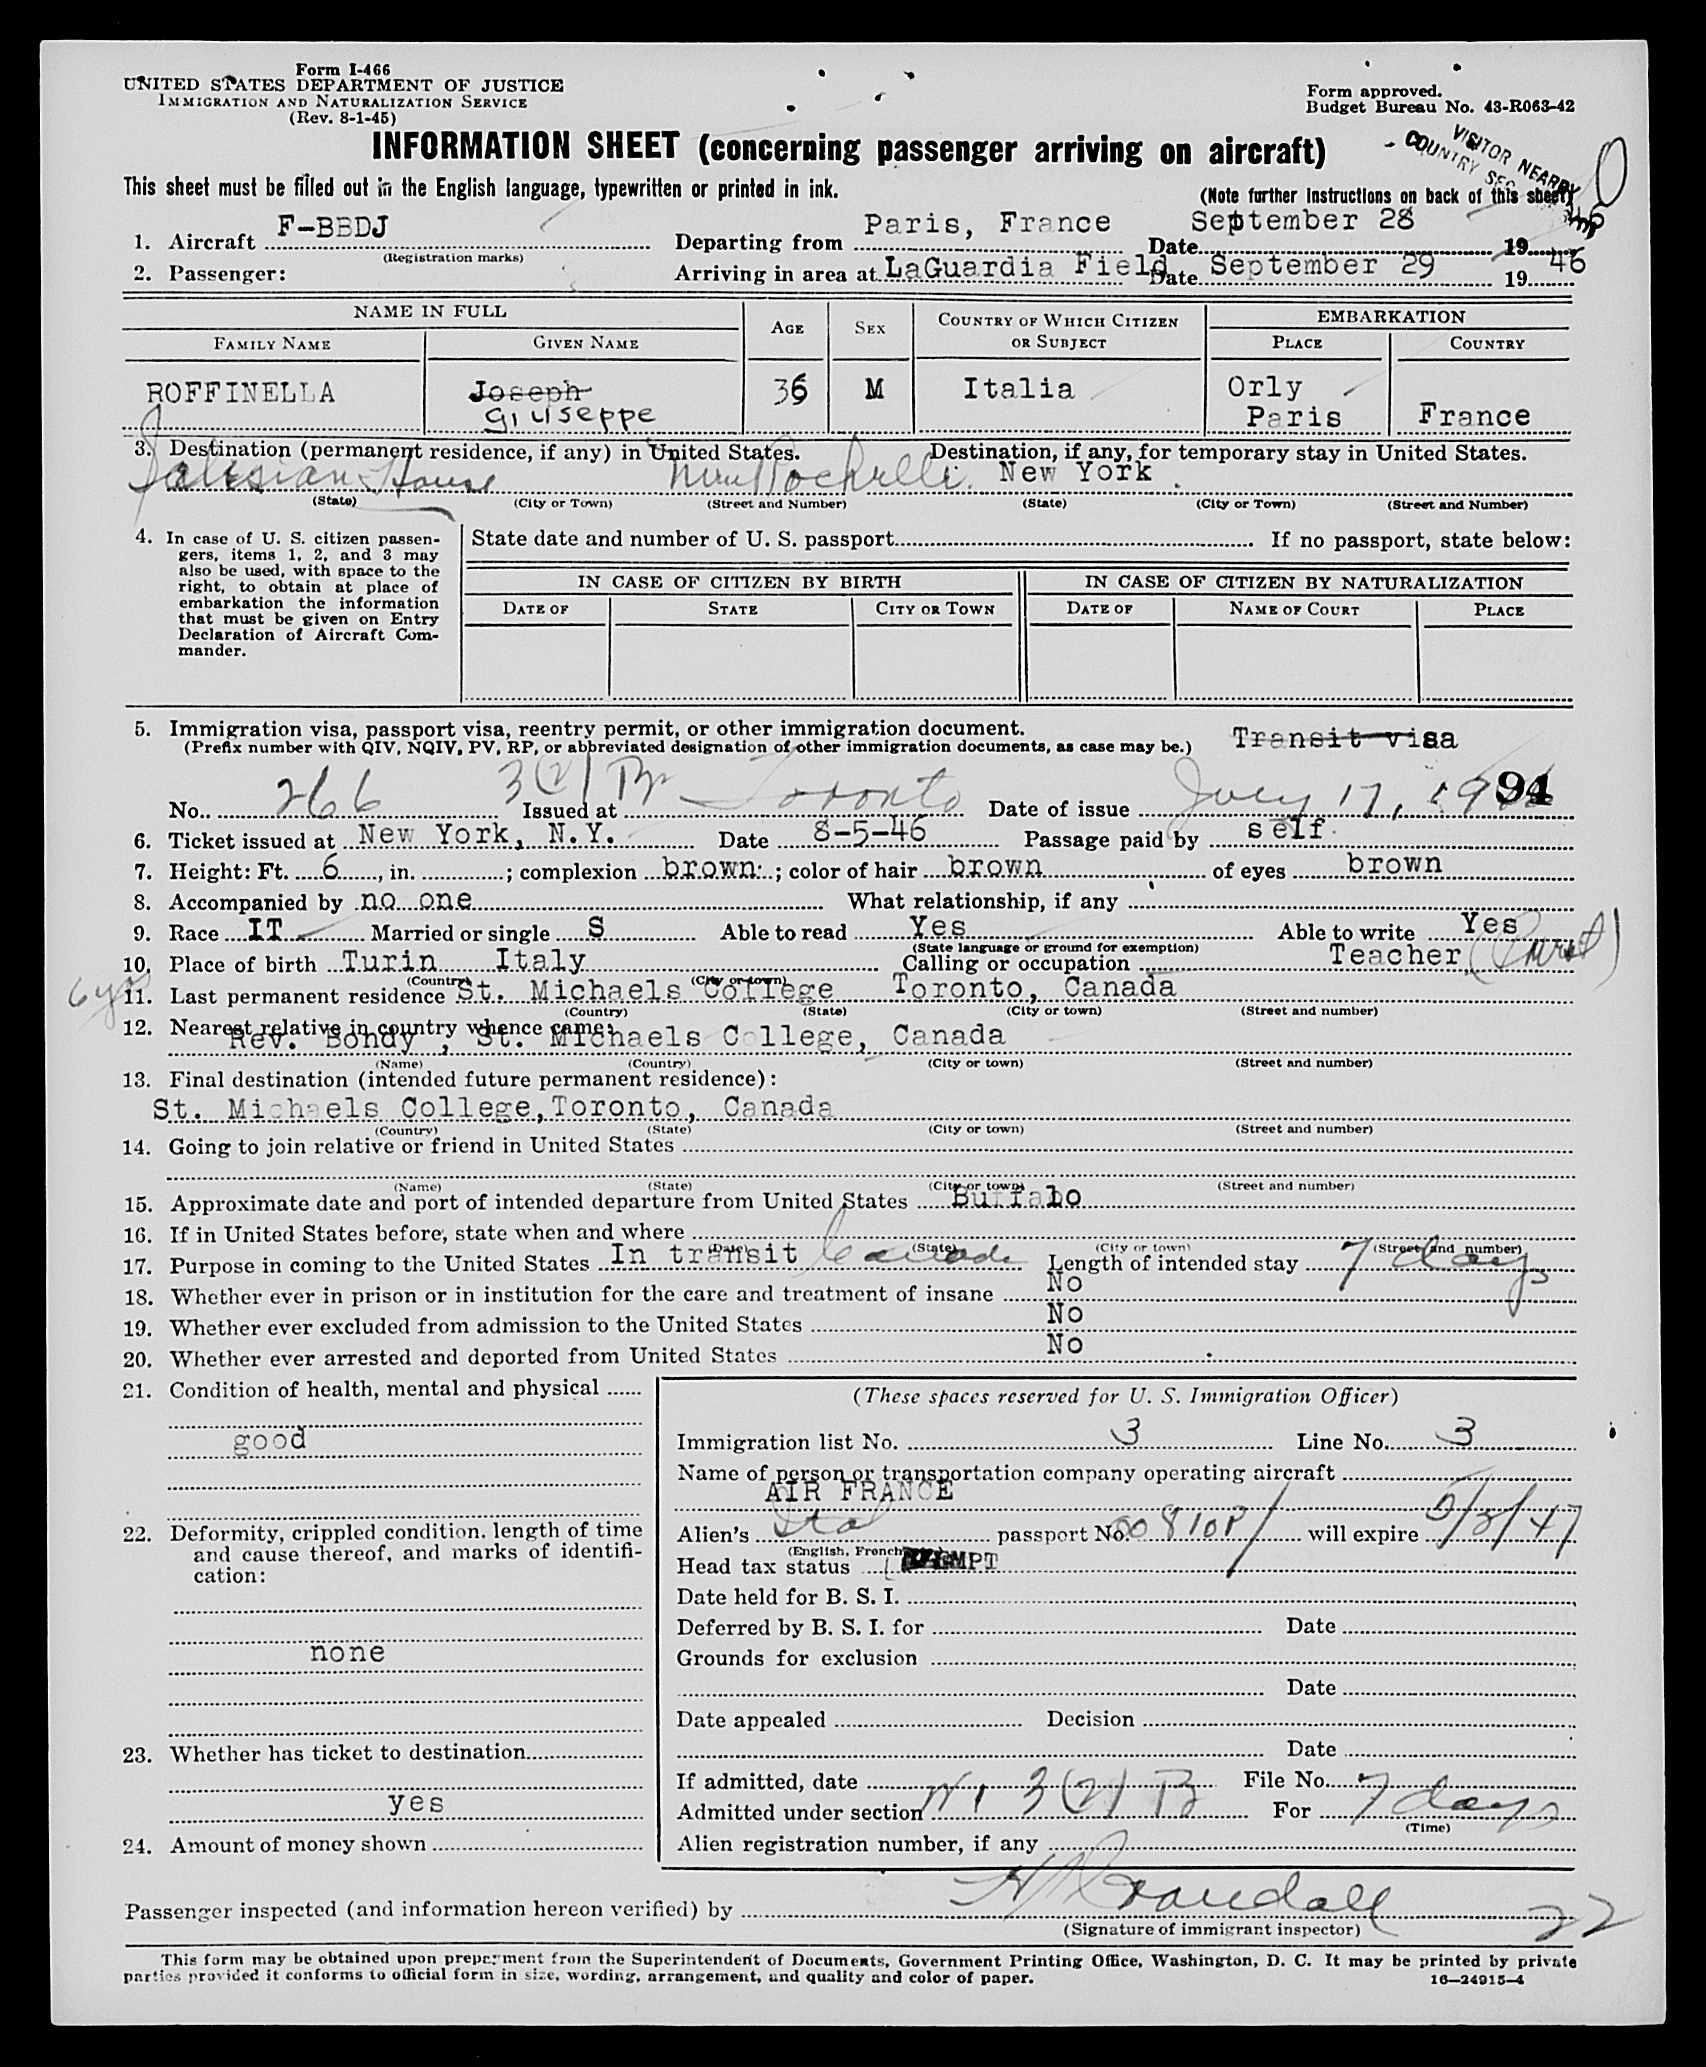 Form I-466
UNITED STATES DEPARTMENT OF JUSTICE
IMMIGRATION AND NATURALIZATION SERVICE
(Rev. 8-1-45)
Form approved.
Budget Bureau No. 43-R063-42
INFORMATION SHEET (concerning passenger arriving on aircraft)
VISITOR NEARBY
COUNTRY SEC
This sheet must be filled out in the English language, typewritten or printed in ink.
(Note further instructions on back of this sheet)
1. Aircraft F-BBDJ Departing from Paris, France Date September 28 19 46
(Registration marks)
2. Passenger: Arriving in area at LaGuardia Field Date September 29 19 46
NAME IN FULL AGE SEX COUNTRY OF WHICH CITIZEN OR SUBJECT EMBARKATION
FAMILY NAME GIVEN NAME PLACE COUNTRY
ROFFINELLA Joseph 36 M Italia Orly
Giuseppe Paris France
3. Destination (permanent residence, if any) in United States. Destination, if any, for temporary stay in United States.
Salesian House New Rochelle. New York
(State) (City or Town) (Street and Number) (State) (City or Town) (Street and Number)
4. In case of U. S. citizen passen-
gers, items 1, 2, and 3 may
also be used, with space to the
right, to obtain at place of
embarkation the information
that must be given on Entry
Declaration of Aircraft Com-
mander.
State date and number of U. S. passport If no passport, state below:
IN CASE OF CITIZEN BY BIRTH IN CASE OF CITIZEN BY NATURALIZATION
DATE OF STATE CITY OR TOWN DATE OF NAME OF COURT PLACE
5. Immigration visa, passport visa, reentry permit, or other immigration document.
(Prefix number with QIV, NQIV, PV, RP, or abbreviated designation of other immigration documents, as case may be.) Transit visa
No. 266 3(2) Issued at Toronto Date of issue July 17, 94
6. Ticket issued at New York, N.Y. Date 8-5-46 Passage paid by self
7. Height: Ft. 6, in. ; complexion brown ; color of hair brown of eyes brown
8. Accompanied by no one What relationship, if any
9. Race IT Married or single S Able to read Yes Able to write Yes
(State language or ground for exemption)
10. Place of birth Turin Italy Calling or occupation Teacher (Priest)
(Country) (City or town)
6 yrs
11. Last permanent residence St. Michaels College Toronto, Canada
(Country) (State) (City or town) (Street and number)
12. Nearest relative in country whence came:
Rev. Bondy, St. Michaels College, Canada
(Name) (Country) (City or town) (Street and number)
13. Final destination (intended future permanent residence):
St. Michaels College, Toronto, Canada
(Country) (State) (City or town) (Street and number)
14. Going to join relative or friend in United States
(Name) (State) (City or town) (Street and number)
15. Approximate date and port of intended departure from United States Buffalo
16. If in United States before, state when and where
(Date) (State) (City or town) (Street and number)
17. Purpose in coming to the United States In transit Canada Length of intended stay 7 days
18. Whether ever in prison or in institution for the care and treatment of insane No
19. Whether ever excluded from admission to the United States No
20. Whether ever arrested and deported from United States No
21. Condition of health, mental and physical
good
22. Deformity, crippled condition, length of time
and cause thereof, and marks of identifi-
cation:
none
23. Whether has ticket to destination
yes
24. Amount of money shown
(These spaces reserved for U. S. Immigration Officer)
Immigration list No. 3 Line No. 3
Name of person or transportation company operating aircraft
AIR FRANCE
Alien's Ital passport No. 00810P will expire 5/3/47
(English, French
Head tax status EXEMPT
Date held for B. S. I.
Deferred by B. S. I. for Date
Grounds for exclusion
Date
Date appealed Decision
Date
If admitted, date File No.
Admitted under section 3(2) B For 7 days
(Time)
Alien registration number, if any
Passenger inspected (and information hereon verified) by Crandall 22
(Signature of immigrant inspector)
This form may be obtained upon prepayment from the Superintendent of Documents, Government Printing Office, Washington, D. C. It may be printed by private
parties provided it conforms to official form in size, wording, arrangement, and quality and color of paper.
16—24915-4